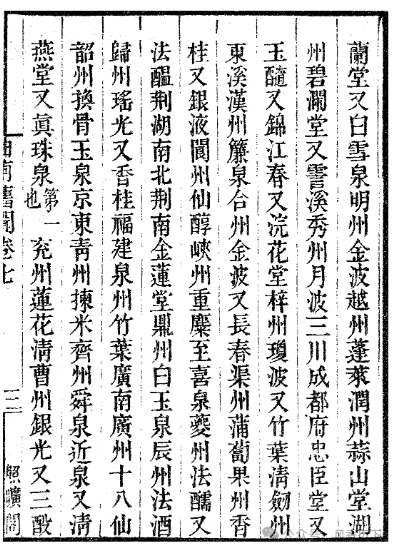 蘭堂又白雪泉明州金波越州蓬萊潤州蒜山堂湖
州碧瀾堂又霅溪秀州月波三川成都府忠臣堂又
玉髓又錦江春又浣花堂梓州瓊波又竹葉淸劔州
東溪漢州簾泉台州金波又長春渠州蒲萄果州香
桂又銀液閬州仙醇峽州重麋至喜泉夔州法醹又
法醖荊湖南北荊南金蓮堂鼎州白玉泉辰州法酒
歸州瑤光又香桂福建泉州竹葉廣南廣州十八仙
韶州換骨玉泉京東靑州揀米齊州舜泉近泉又淸
燕堂又眞珠泉第一也兖州蓮花淸曹州銀光又三酘
舊聞卷七
三
照曠閣